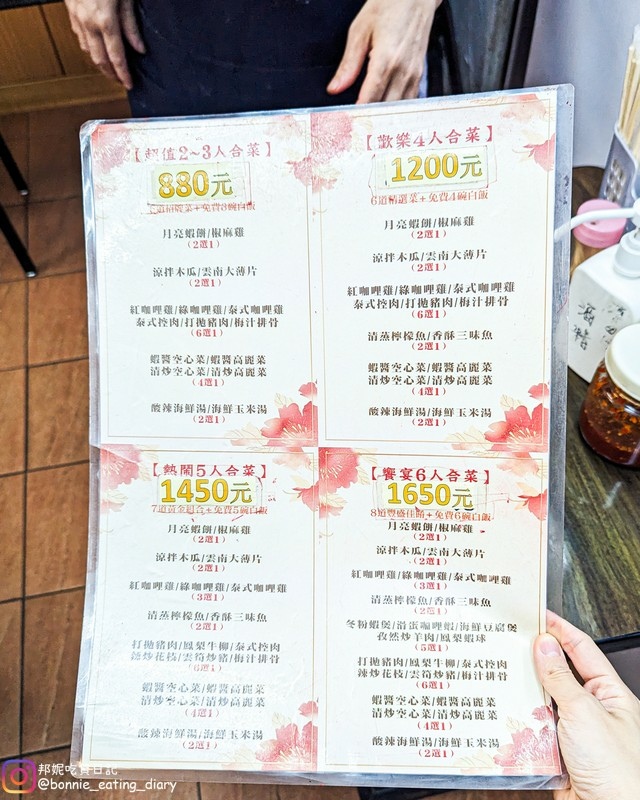 【超值2~3人合菜】
880元
5道招牌菜+免費3碗白飯
月亮蝦餅/椒麻雞
(2選1)
涼拌木瓜/雲南大薄片
(2選1)
紅咖哩雞/綠咖哩雞/泰式咖哩雞
泰式控肉/打拋豬肉/梅汁排骨
(6選1)
蝦醬空心菜/蝦醬高麗菜
清炒空心菜/清炒高麗菜
(4選1)
酸辣海鮮湯/海鮮玉米湯
(2選1)
【歡樂4人合菜】
1200元
6道精選菜+免費4碗白飯
月亮蝦餅/椒麻雞
(2選1)
涼拌木瓜/雲南大薄片
(2選1)
紅咖哩雞/綠咖哩雞/泰式咖哩雞
泰式控肉/打拋豬肉/梅汁排骨
(6選1)
清蒸檸檬魚/香酥三味魚
(2選1)
蝦醬空心菜/蝦醬高麗菜
清炒空心菜/清炒高麗菜
(4選1)
酸辣海鮮湯/海鮮玉米湯
(2選1)
【熱鬧5人合菜】
1450元
7道黃金組合+免費5碗白飯
月亮蝦餅/椒麻雞
(2選1)
涼拌木瓜/雲南大薄片
(2選1)
紅咖哩雞/綠咖哩雞/泰式咖哩雞
(3選1)
清蒸檸檬魚/香酥三味魚
(2選1)
打拋豬肉/鳳梨牛柳/泰式控肉
辣炒花枝/雲筍炒豬/梅汁排骨
(6選1)
蝦醬空心菜/蝦醬高麗菜
清炒空心菜/清炒高麗菜
(4選1)
酸辣海鮮湯/海鮮玉米湯
(2選1)
【饗宴6人合菜】
1650元
8道豐盛佳餚+免費6碗白飯
月亮蝦餅/椒麻雞
(2選1)
涼拌木瓜/雲南大薄片
(2選1)
紅咖哩雞/綠咖哩雞/泰式咖哩雞
(3選1)
清蒸檸檬魚/香酥三味魚
(2選1)
冬粉蝦煲/滑蛋咖哩蝦/海鮮豆腐煲
孜然炒羊肉/鳳梨蝦球
(5選1)
打拋豬肉/鳳梨牛柳/泰式控肉
辣炒花枝/雲筍炒豬/梅汁排骨
(6選1)
蝦醬空心菜/蝦醬高麗菜
清炒空心菜/清炒高麗菜
(4選1)
酸辣海鮮湯/海鮮玉米湯
(2選1)
酒精
邦妮吃貨日記
@bonnie_eating_diary